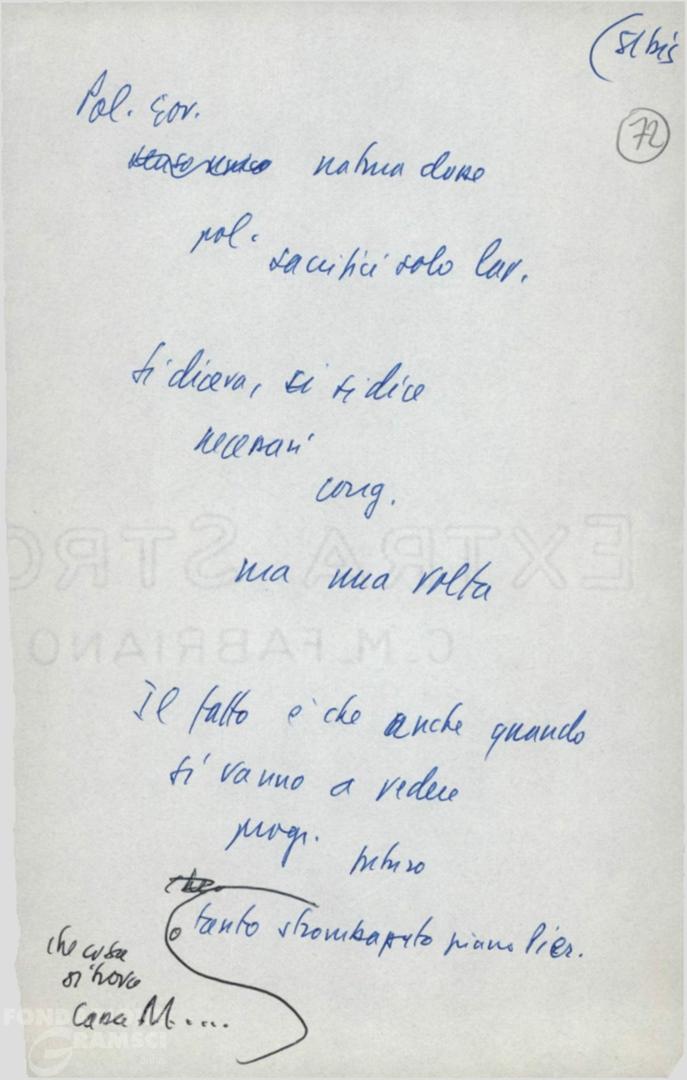 (51 bis
72
Pol. Gov.
natura dura
pol. sacrifici solo lav.
si diceva, si si dice
necessari
cong.
ma una volta
Il fatto è che anche quando
si vanno a vedere
progr. futuro
o tanto strombazzato piano Pier.
che cosa
si trova
M....
EXTRA STRO
C.M. FABRIANO
FONDAZIONE
GRAMSCI